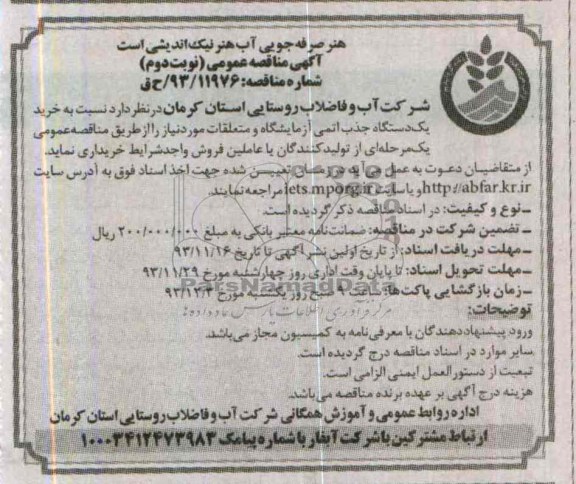 هنر صرفه جویی آب هنر نیک اندیشی است
آگهی مناقصه عمومی (نوبت دوم)
شماره مناقصه: ۹۳/۱۱۹۷۶/ح ق
شرکت آب و فاضلاب روستایی استان کرمان در نظر دارد نسبت به خرید
یک دستگاه جذب اتمی آزمایشگاه و متعلقات مورد نیاز را از طریق مناقصه عمومی
یک مرحله‌ای از تولیدکنندگان یا عاملین فروش واجد شرایط خریداری نماید.
از متقاضیان دعوت به عمل می آید در زمان تعیین شده جهت اخذ اسناد فوق به آدرس سایت
http://abfar.kr.ir و یا سایت iets.mporg.ir مراجعه نمایند.
ـ نوع و کیفیت: در اسناد مناقصه ذکر گردیده است.
ـ تضمین شرکت در مناقصه: ضمانت‌نامه معتبر بانکی به مبلغ ۲۰۰/۰۰۰/۰۰۰ ریال
ـ مهلت دریافت اسناد: از تاریخ اولین نشر آگهی تا تاریخ ۹۳/۱۱/۱۶
ـ مهلت تحویل اسناد: تا پایان وقت اداری روز چهارشنبه مورخ ۹۳/۱۱/۲۹
ـ زمان بازگشایی پاکت‌ها: ساعت ۹ صبح روز یکشنبه مورخ ۹۳/۱۲/۳
توضیحات:
ParsNamadData
مرکز فرآوری اطلاعات پارس نماد داده ها
ورود پیشنهاددهندگان با معرفی‌نامه به کمیسیون مجاز می‌باشد.
سایر موارد در اسناد مناقصه درج گردیده است.
تبعیت از دستورالعمل ایمنی الزامی است.
هزینه درج آگهی بر عهده برنده مناقصه می‌باشد.
اداره روابط عمومی و آموزش همگانی شرکت آب و فاضلاب روستایی استان کرمان
ارتباط مشترکین با شرکت آبفار با شماره پیامک ۱۰۰۰۳۴۱۲۴۷۳۹۸۳